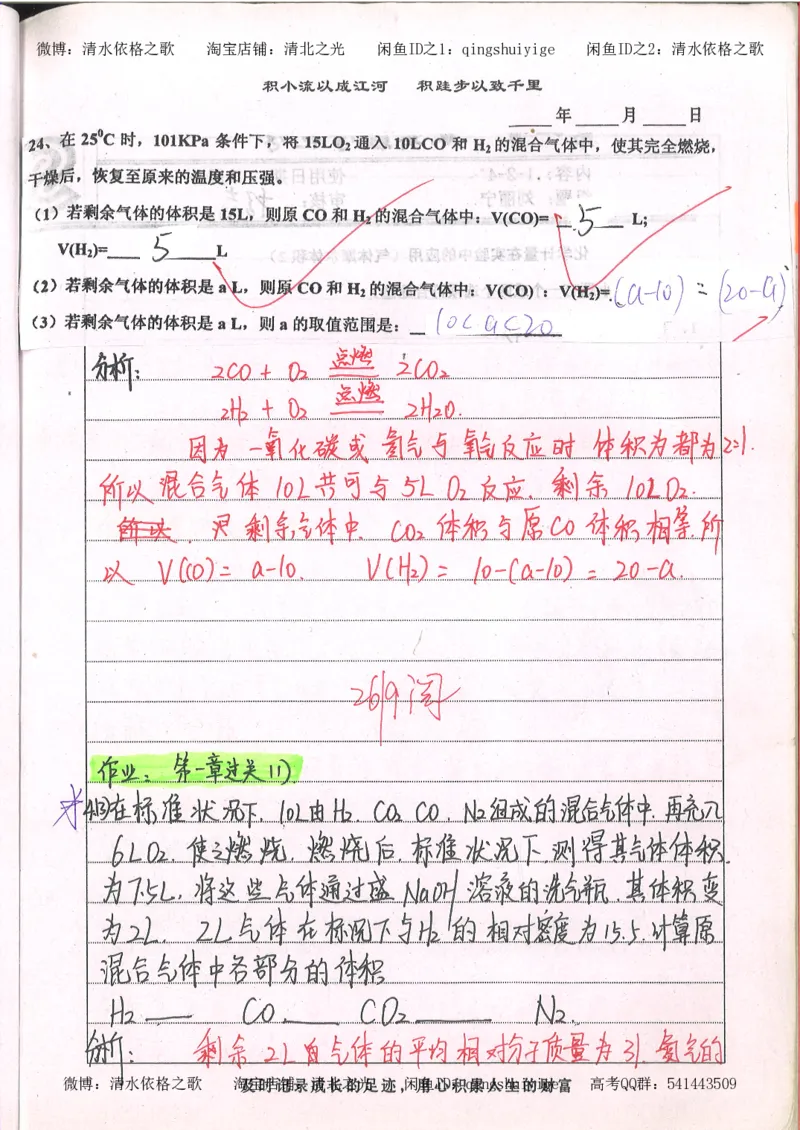 微博：清水依格之歌 淘宝店铺：清北之光 闲鱼ID之1：qingshuiyige 闲鱼ID之2：清水依格之歌
积小流以成江河 积跬步以致千里
____年____月____日
24、在 25⁰C 时，101KPa 条件下，将 15LO₂ 通入 10LCO 和 H₂ 的混合气体中，使其完全燃烧，
干燥后，恢复至原来的温度和压强。
（1）若剩余气体的体积是 15L，则原 CO 和 H₂ 的混合气体中：V(CO)= 5 L;
V(H₂)= 5 L
（2）若剩余气体的体积是 a L，则原 CO 和 H₂ 的混合气体中：V(CO)：V(H₂)= (a-10) : (20-a)
（3）若剩余气体的体积是 a L，则 a 的取值范围是： 10<a<20
分析： 2CO + O₂ 点燃 2CO₂
2H₂ + O₂ 点燃 2H₂O.
因为一氧化碳或氢气与氧气反应时 体积为都为2:1.
所以混合气体10L共可与5L O₂反应. 剩余10LO₂.
所以. 又剩余气体中. CO₂体积与原CO体积相等.所
以 V(CO)= a-10. V(H₂)= 10-(a-10) = 20-a.
阅
作业：第一章过关(1)
43)在标准状况下, 10L由H₂. CO₂ CO. N₂组成的混合气体中.再充入
6LO₂. 使之燃烧. 燃烧后.标准状况下.测得其气体体积.
为7.5L.将这些气体通过盛NaOH溶液的洗气瓶.其体积变
为2L. 2L气体在标况下与H₂的相对密度为15.5.计算原
混合气体中各部分的体积
H₂____ CO____ CO₂____ N₂.
分析： 剩余2L的气体的平均相对分子质量为31.氢气的
微博：清水依格之歌 淘宝店铺：清北之光 闲鱼ID之1：qingshuiyige 高考QQ群：541443509
及时记录成长的足迹，用心积累人生的财富